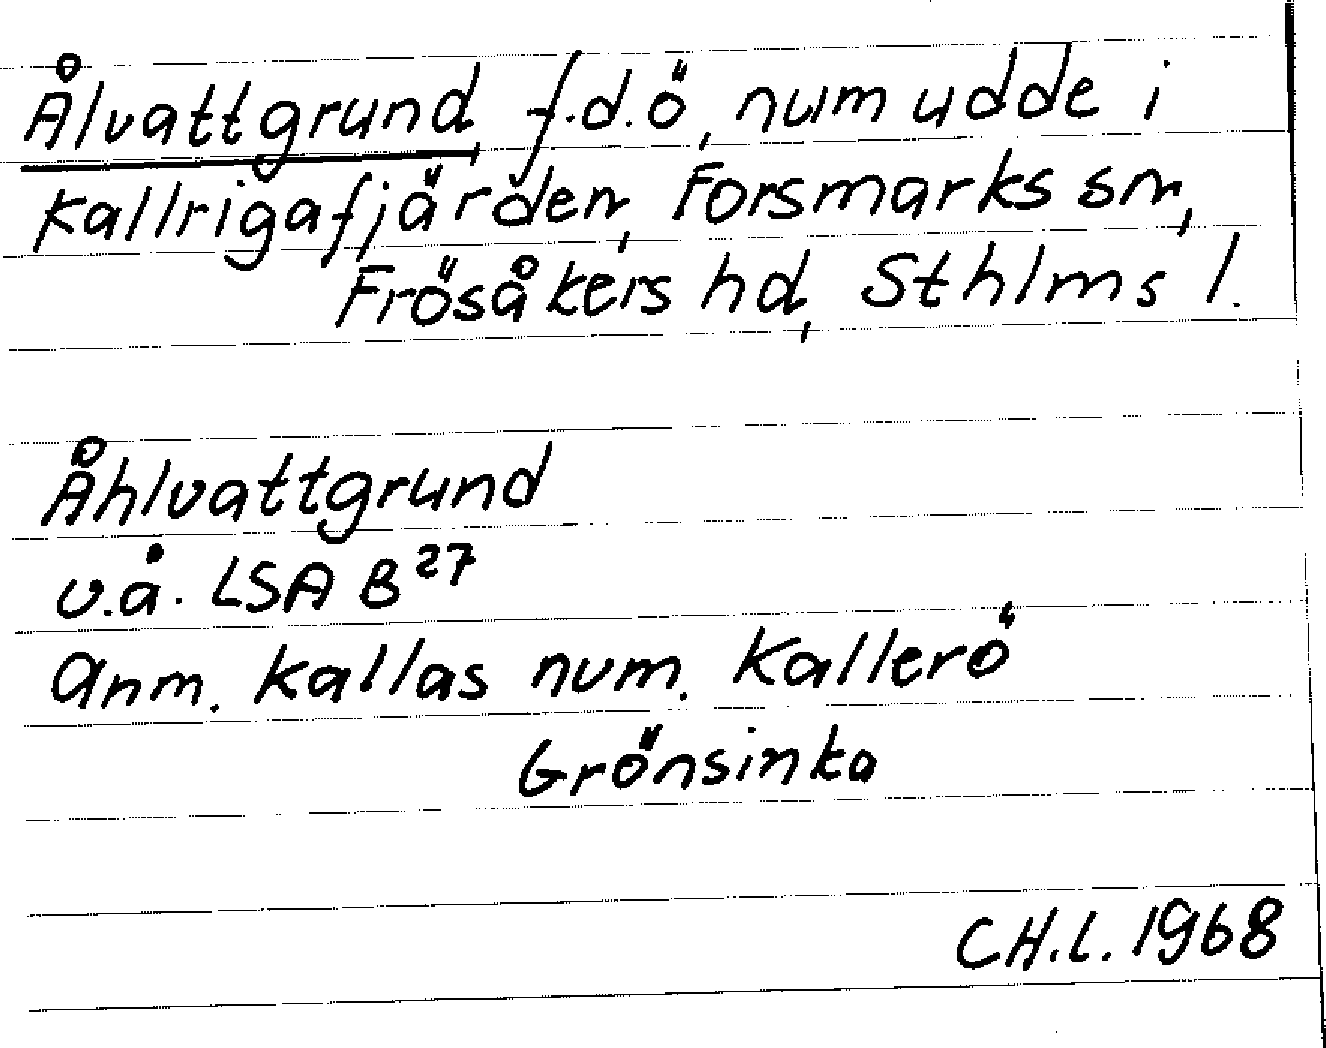 Ålvattgrund, f.d.ö, num udde i
Kallrigafjärden, Forsmarks sn,
Frösåkers hd, Sthlms l.
Åhlvattgrund
u.å. LSA B27
Anm. Kallas num. Kallerö
Grönsinka
CH.L. 1968